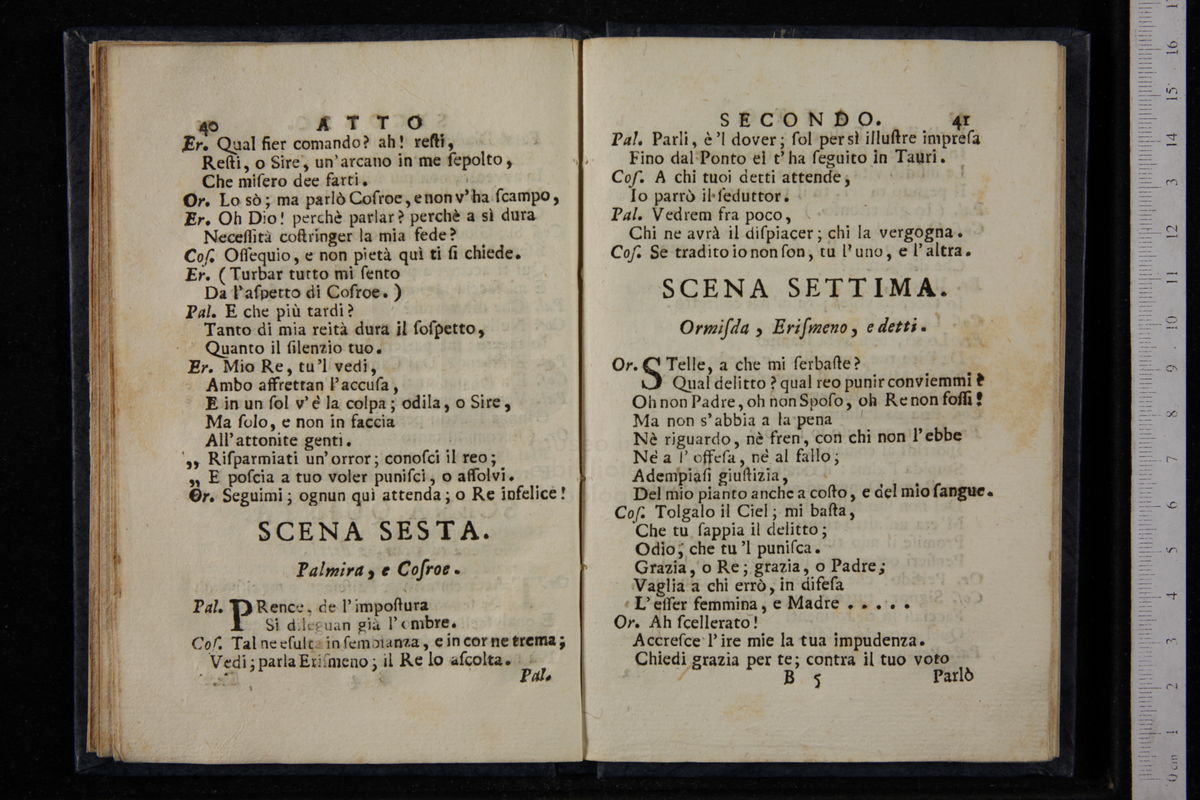 40 ATTO
Er. Qual fier comando? ah! reſti,
Reſti, o Sire, un'arcano in me ſepolto,
Che miſero dee farti.
Or. Lo sò; ma parlò Coſroe, e non v'ha ſcampo,
Er. Oh Dio! perchè parlar? perchè a sì dura
Neceſſità coſtringer la mia fede?
Coſ. Oſſequio, e non pietà quì ti ſi chiede.
Er. (Turbar tutto mi ſento
Da l'aſpetto di Coſroe.)
Pal. E che più tardi?
Tanto di mia reità dura il ſoſpetto,
Quanto il ſilenzio tuo.
Er. Mio Re, tu'l vedi,
Ambo affrettan l'accuſa,
E in un ſol v'è la colpa; odila, o Sire,
Ma ſolo, e non in faccia
All'attonite genti.
„ Riſparmiati un'orror; conoſci il reo;
„ E poſcia a tuo voler puniſci, o aſſolvi.
Or. Seguimi; ognun quì attenda; o Re infelice!
SCENA SESTA.
Palmira, e Coſroe.
Pal. PRence, de l'impoſtura
Si dileguan già l'ombre.
Coſ. Tal ne eſulta in ſembianza, e in cor ne trema;
Vedi; parla Eriſmeno; il Re lo aſcolta.
Pal.
SECONDO. 41
Pal. Parli, è 'l dover; ſol per sì illuſtre impreſa
Fino dal Ponto ei t'ha ſeguito in Tauri.
Coſ. A chi tuoi detti attende,
Io parrò il ſeduttor.
Pal. Vedrem fra poco,
Chi ne avrà il diſpiacer; chi la vergogna.
Coſ. Se tradito io non ſon, tu l'uno, e l'altra.
SCENA SETTIMA.
Ormiſda, Eriſmeno, e detti.
Or. STelle, a che mi ſerbaſte?
Qual delitto? qual reo punir conviemmi?
Oh non Padre, oh non Spoſo, oh Re non foſſi!
Ma non s'abbia a la pena
Nè riguardo, nè fren, con chi non l'ebbe
Nè a l'offeſa, nè al fallo;
Adempiaſi giuſtizia,
Del mio pianto anche a coſto, e del mio ſangue.
Coſ. Tolgalo il Ciel; mi baſta,
Che tu ſappia il delitto;
Odio, che tu 'l puniſca.
Grazia, o Re; grazia, o Padre;
Vaglia a chi errò, in difeſa
L'eſſer femmina, e Madre . . . . .
Or. Ah ſcellerato!
Accreſce l'ire mie la tua impudenza.
Chiedi grazia per te; contra il tuo voto
B 5 Parlò
0 cm 1 2 3 4 5 6 7 8 9 10 11 12 13 14 15 16